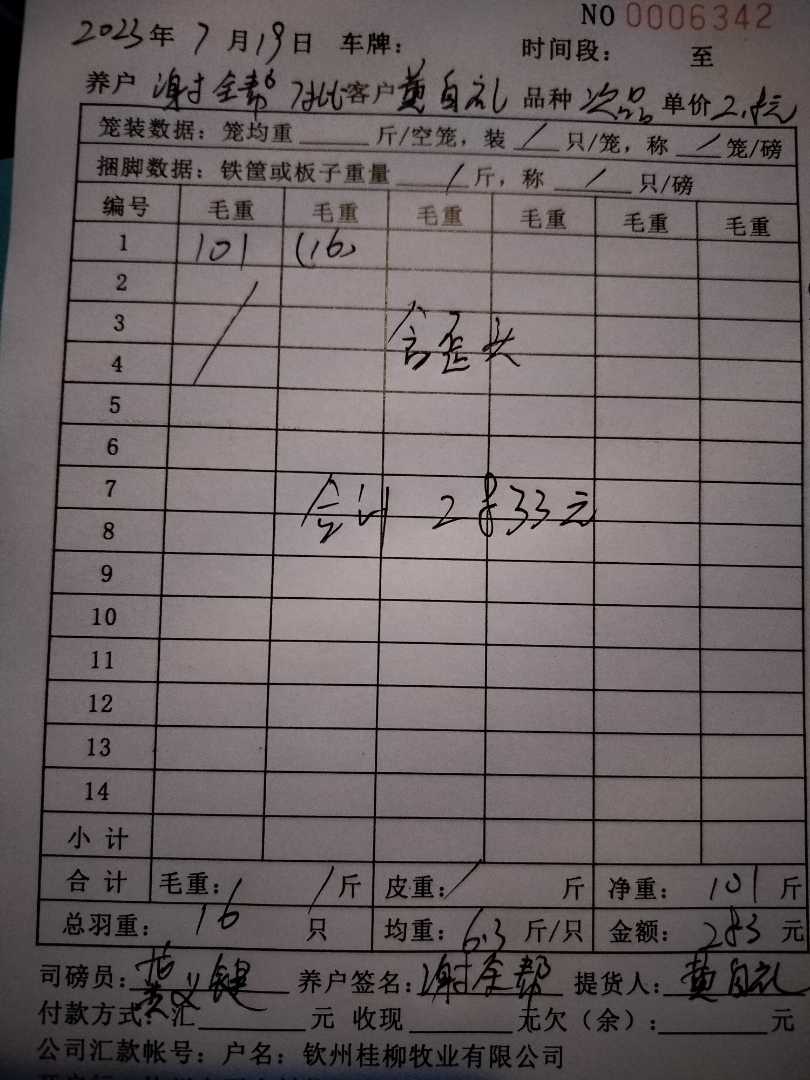 NO 0006342
2023年 7月19日 车牌： 时间段： 至
养户 谢全帮 客户 黄自礼 品种 次品 单价 2.8元
笼装数据：笼均重 斤/空笼，装 / 只/笼，称 / 笼/磅
捆脚数据：铁筐或板子重量 / 斤，称 / 只/磅
编号 毛重 毛重 毛重 毛重 毛重 毛重
1 101 (16)
2
3 含歪头
4
5
6
7
合计 2833元
8
9
10
11
12
13
14
小计
合计 毛重： / 斤 皮重： / 斤 净重： 101 斤
总羽重： 16 只 均重： 6.3 斤/只 金额： 283 元
司磅员：黄义键 养户签名：谢全帮 提货人：黄自礼
付款方式：汇 元 收现 元欠（余）： 元
公司汇款帐号：户名：钦州桂柳牧业有限公司